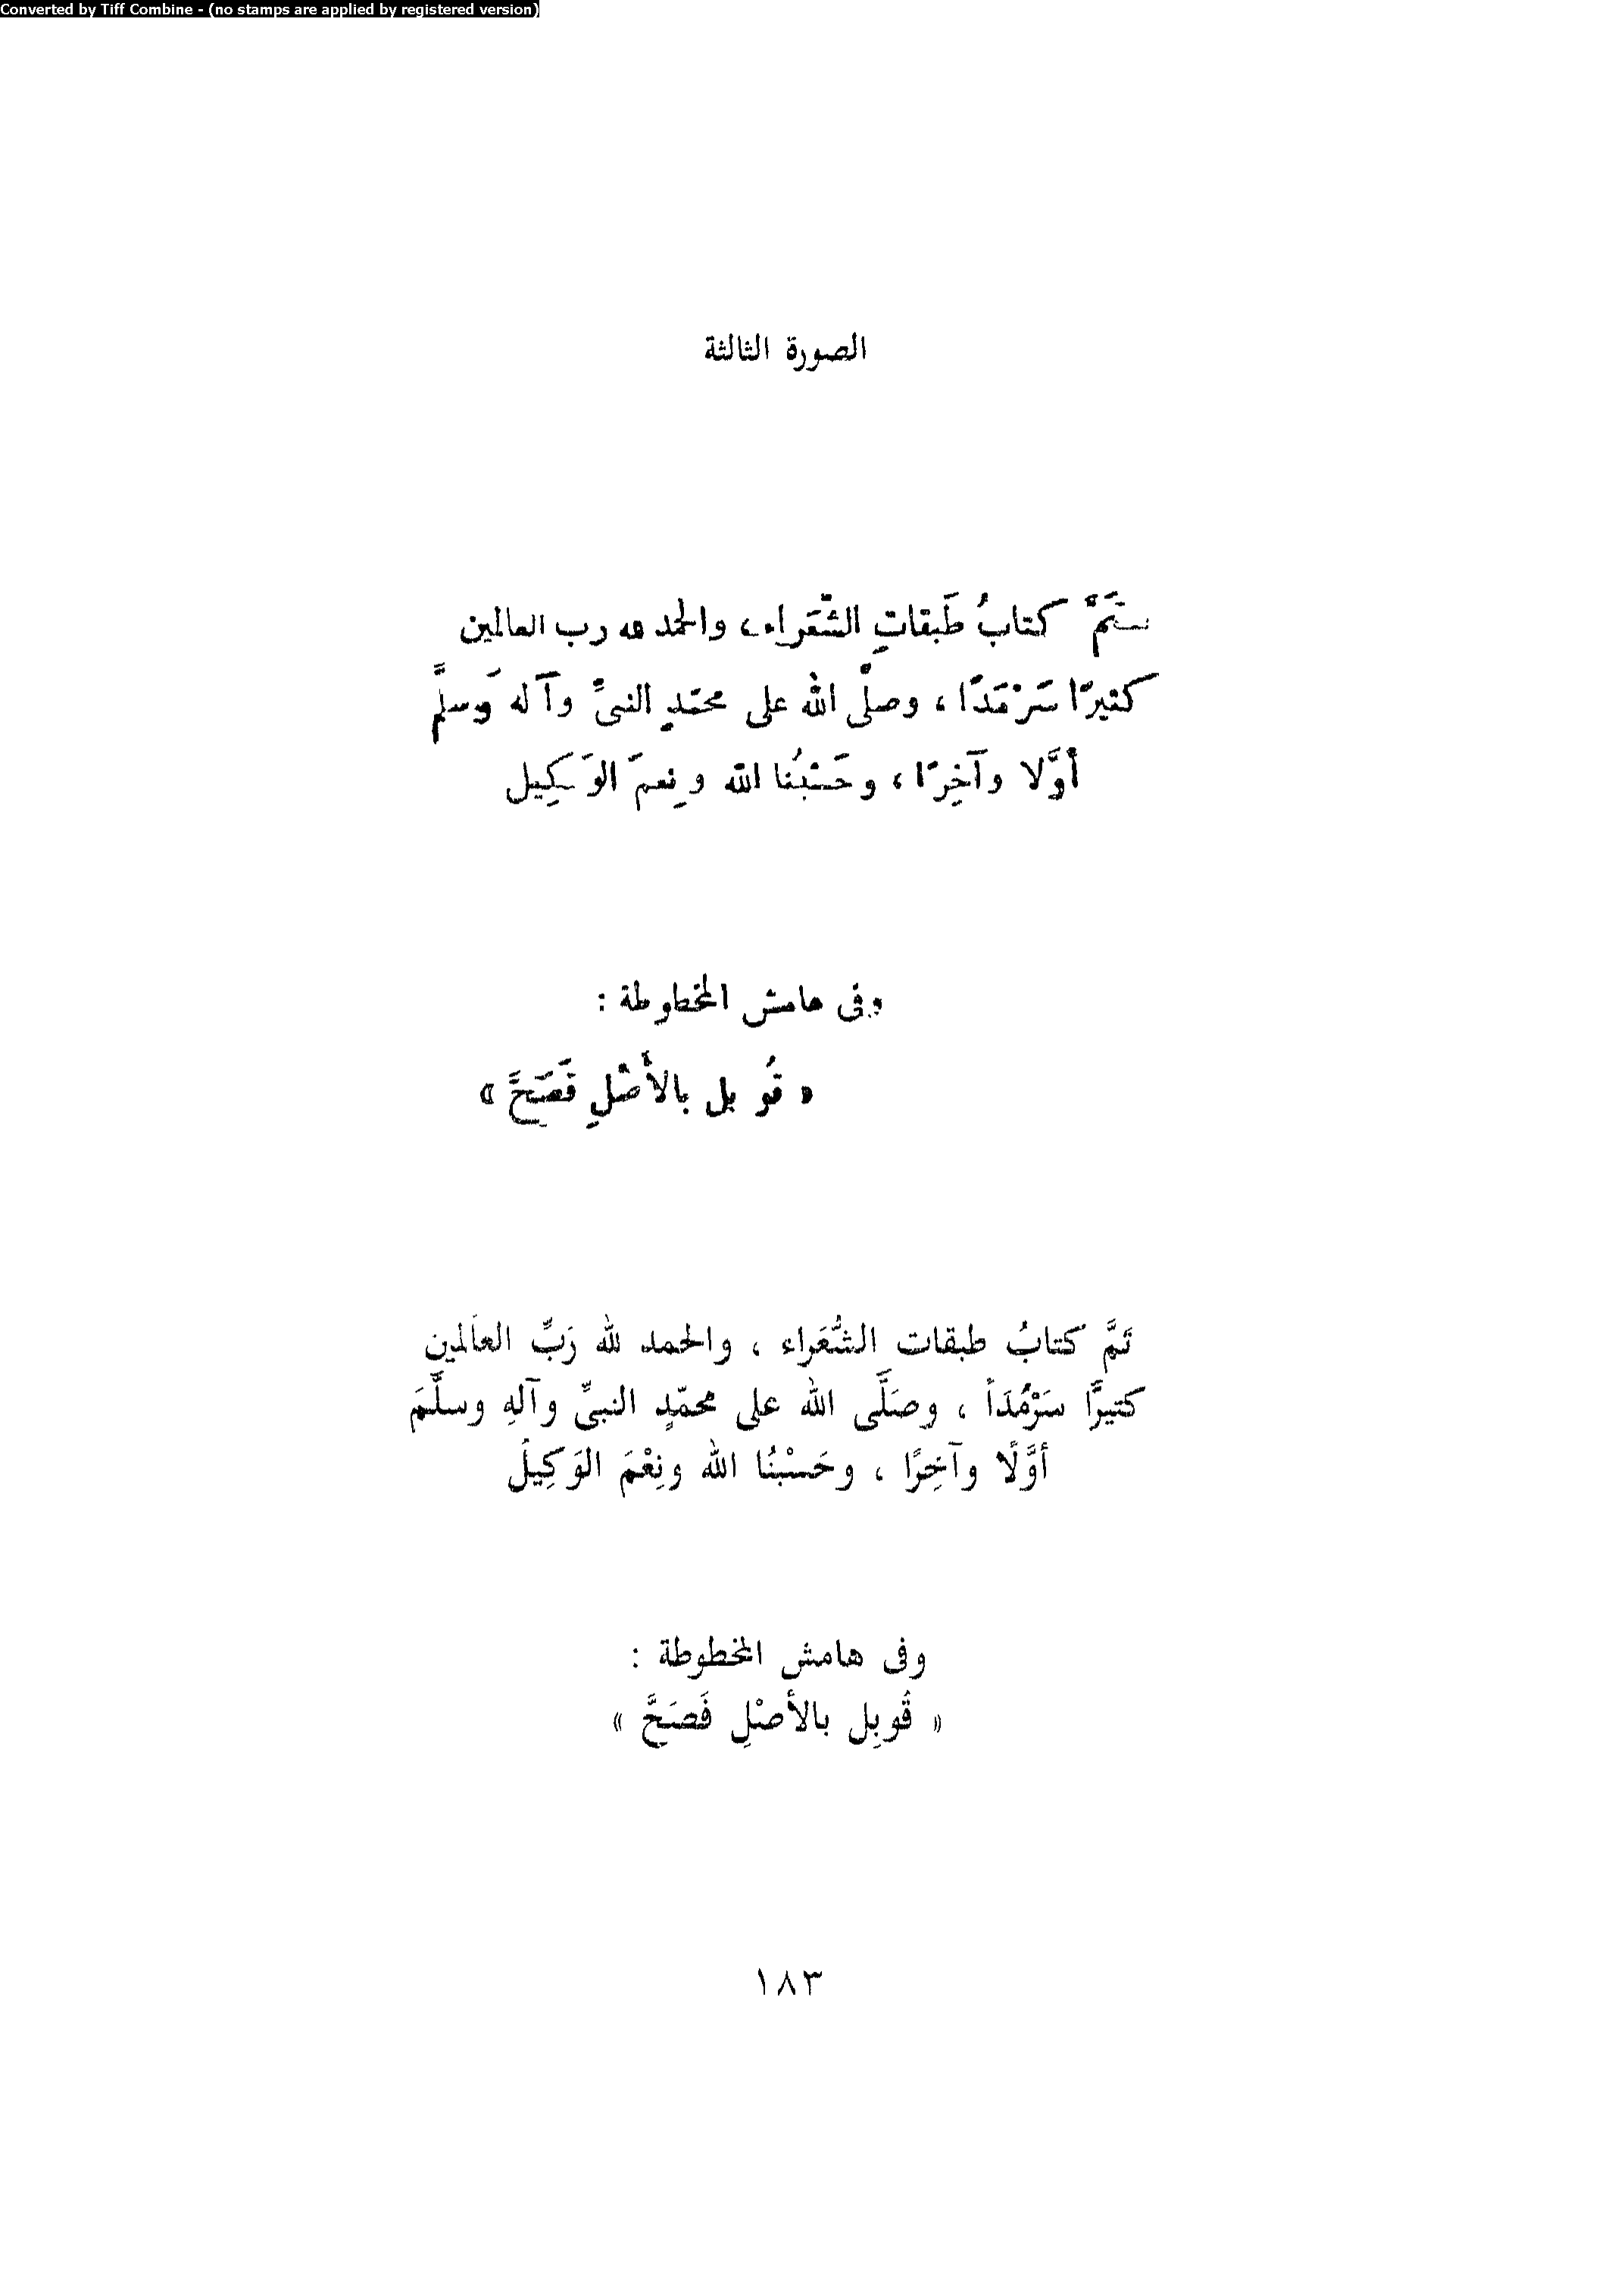 Converted by Tiff Combine - (no stamps are applied by registered version)
الصورة الثالثة
تَمَّ كتابُ طَبقاتِ الشُّعَراء، والحمد لله رب العالمين
كثيرًا سَرْمَدًا ، وصلَّى الله على محمّدٍ النبىِّ وآله وسلَّم
أوَّلا وآخِرًا ، وحَسْبُنا الله ونِعمَ الوَكِيل
وفى هامش المخطوطة :
« قُوبل بالأَصْلِ فَصَحَّ »
تَمَّ كتابُ طبقات الشُّعَراء ، والحمد لله رَبِّ العاَلمين
كتيرًا سَرْمُدَاً ، وصَلَّى الله على محمّدٍ النبىِّ وآلهِ وسلَّمَ
أوَّلًا وآخِرًا ، وحَسْبُنُا الله ونِعْمَ الوَكِيلُ
وفى هامش المخطوطة :
« قُوبِل بالأصْلِ فَصَحَّ »
١٨٣